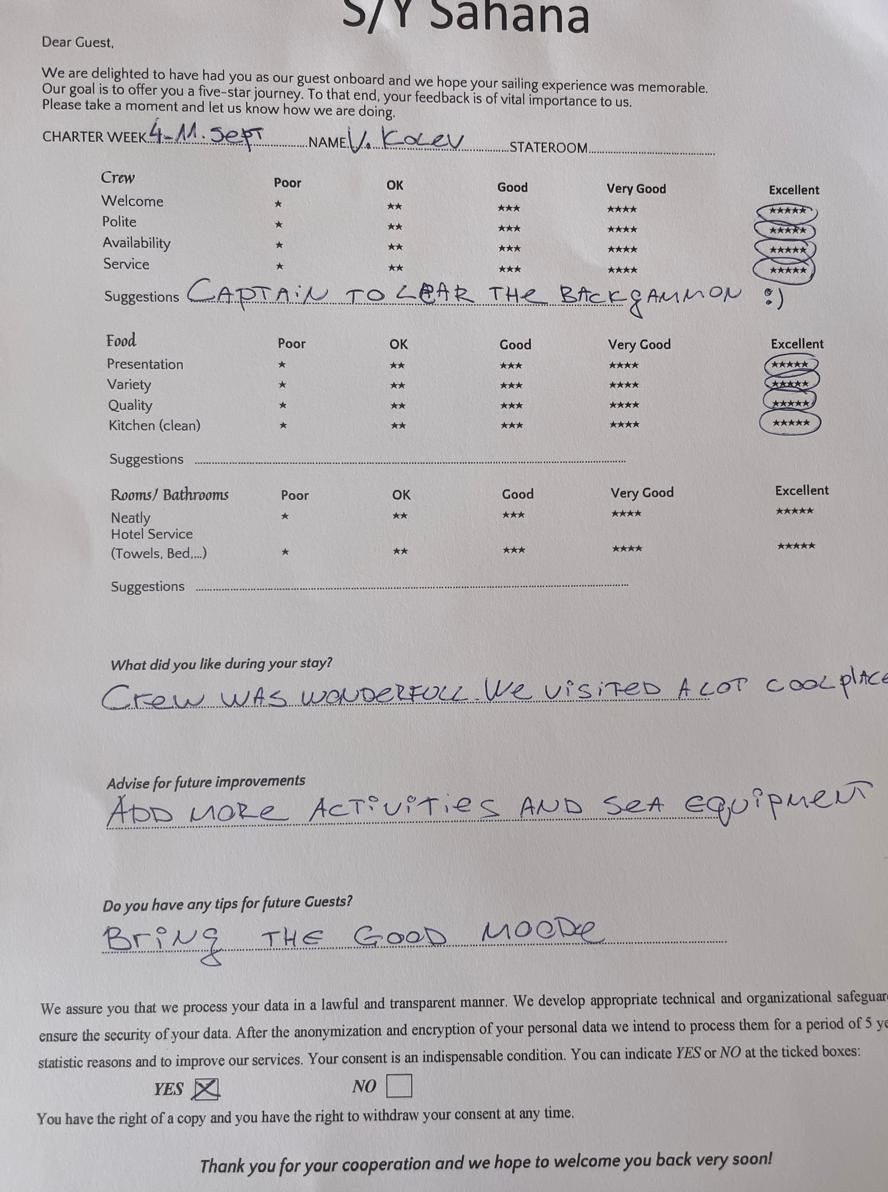 S/Y Sahana
Dear Guest,
We are delighted to have had you as our guest onboard and we hope your sailing experience was memorable.
Our goal is to offer you a five-star journey. To that end, your feedback is of vital importance to us.
Please take a moment and let us know how we are doing.
CHARTER WEEK 4-11. Sept NAME V. Kolev STATEROOM
Crew Poor OK Good Very Good Excellent
Welcome ★ ★★ ★★★ ★★★★ ★★★★★
Polite ★ ★★ ★★★ ★★★★ ★★★★★
Availability ★ ★★ ★★★ ★★★★ ★★★★★
Service ★ ★★ ★★★ ★★★★ ★★★★★
Suggestions CAPTAIN TO LEAR THE BACKgAMMON :)
Food Poor OK Good Very Good Excellent
Presentation ★ ★★ ★★★ ★★★★ ★★★★★
Variety ★ ★★ ★★★ ★★★★ ★★★★★
Quality ★ ★★ ★★★ ★★★★ ★★★★★
Kitchen (clean) ★ ★★ ★★★ ★★★★ ★★★★★
Suggestions
Rooms/ Bathrooms Poor OK Good Very Good Excellent
Neatly ★ ★★ ★★★ ★★★★ ★★★★★
Hotel Service
(Towels, Bed,...) ★ ★★ ★★★ ★★★★ ★★★★★
Suggestions
What did you like during your stay?
Crew WAS WONDERFULL. We visiTED A LOT COOL plACE
Advise for future improvements
ADD MORE ACTiViTieS AND SeA equipMENT
Do you have any tips for future Guests?
BriNg THE GOOD MOODe
We assure you that we process your data in a lawful and transparent manner. We develop appropriate technical and organizational safeguar
ensure the security of your data. After the anonymization and encryption of your personal data we intend to process them for a period of 5 ye
statistic reasons and to improve our services. Your consent is an indispensable condition. You can indicate YES or NO at the ticked boxes:
YES ☒ NO ☐
You have the right of a copy and you have the right to withdraw your consent at any time.
Thank you for your cooperation and we hope to welcome you back very soon!